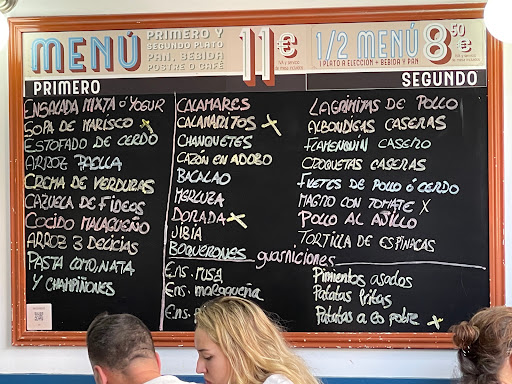 MENÚ
PRIMERO Y
SEGUNDO PLATO
PAN, BEBIDA
POSTRE O CAFÉ
11€
1/2 MENÚ 8,50 €
1 PLATO A ELECCIÓN + BEBIDA Y PAN
PRIMERO
SEGUNDO
ENSALADA MIXTA Ó YOGUR
SOPA DE MARISCO
ESTOFADO DE CERDO
ARROZ PAELLA
CREMA DE VERDURAS
CAZUELA DE FIDEOS
COCIDO MALAGUEÑO
ARROZ 3 DELICIAS
PASTA COMO, NATA
Y CHAMPIÑONES
CALAMARES
CALAMARITOS X
CHANQUETES
CAZÓN EN ADOBO
BACALAO
MERLUZA
DORADA X
JIBIA
BOQUERONES
LAGRIMITAS DE POLLO
ALBONDIGAS CASERAS
FLAMENQUIN CASERO
CROQUETAS CASERAS
FILETES DE POLLO Ó CERDO
MAGRO CON TOMATE X
POLLO AL AJILLO
TORTILLA DE ESPINACAS
guarniciones
Ens. RUSA
Ens. malagueña
Ens.
Pimientos asados
Patatas fritas
Patatas a lo pobre X